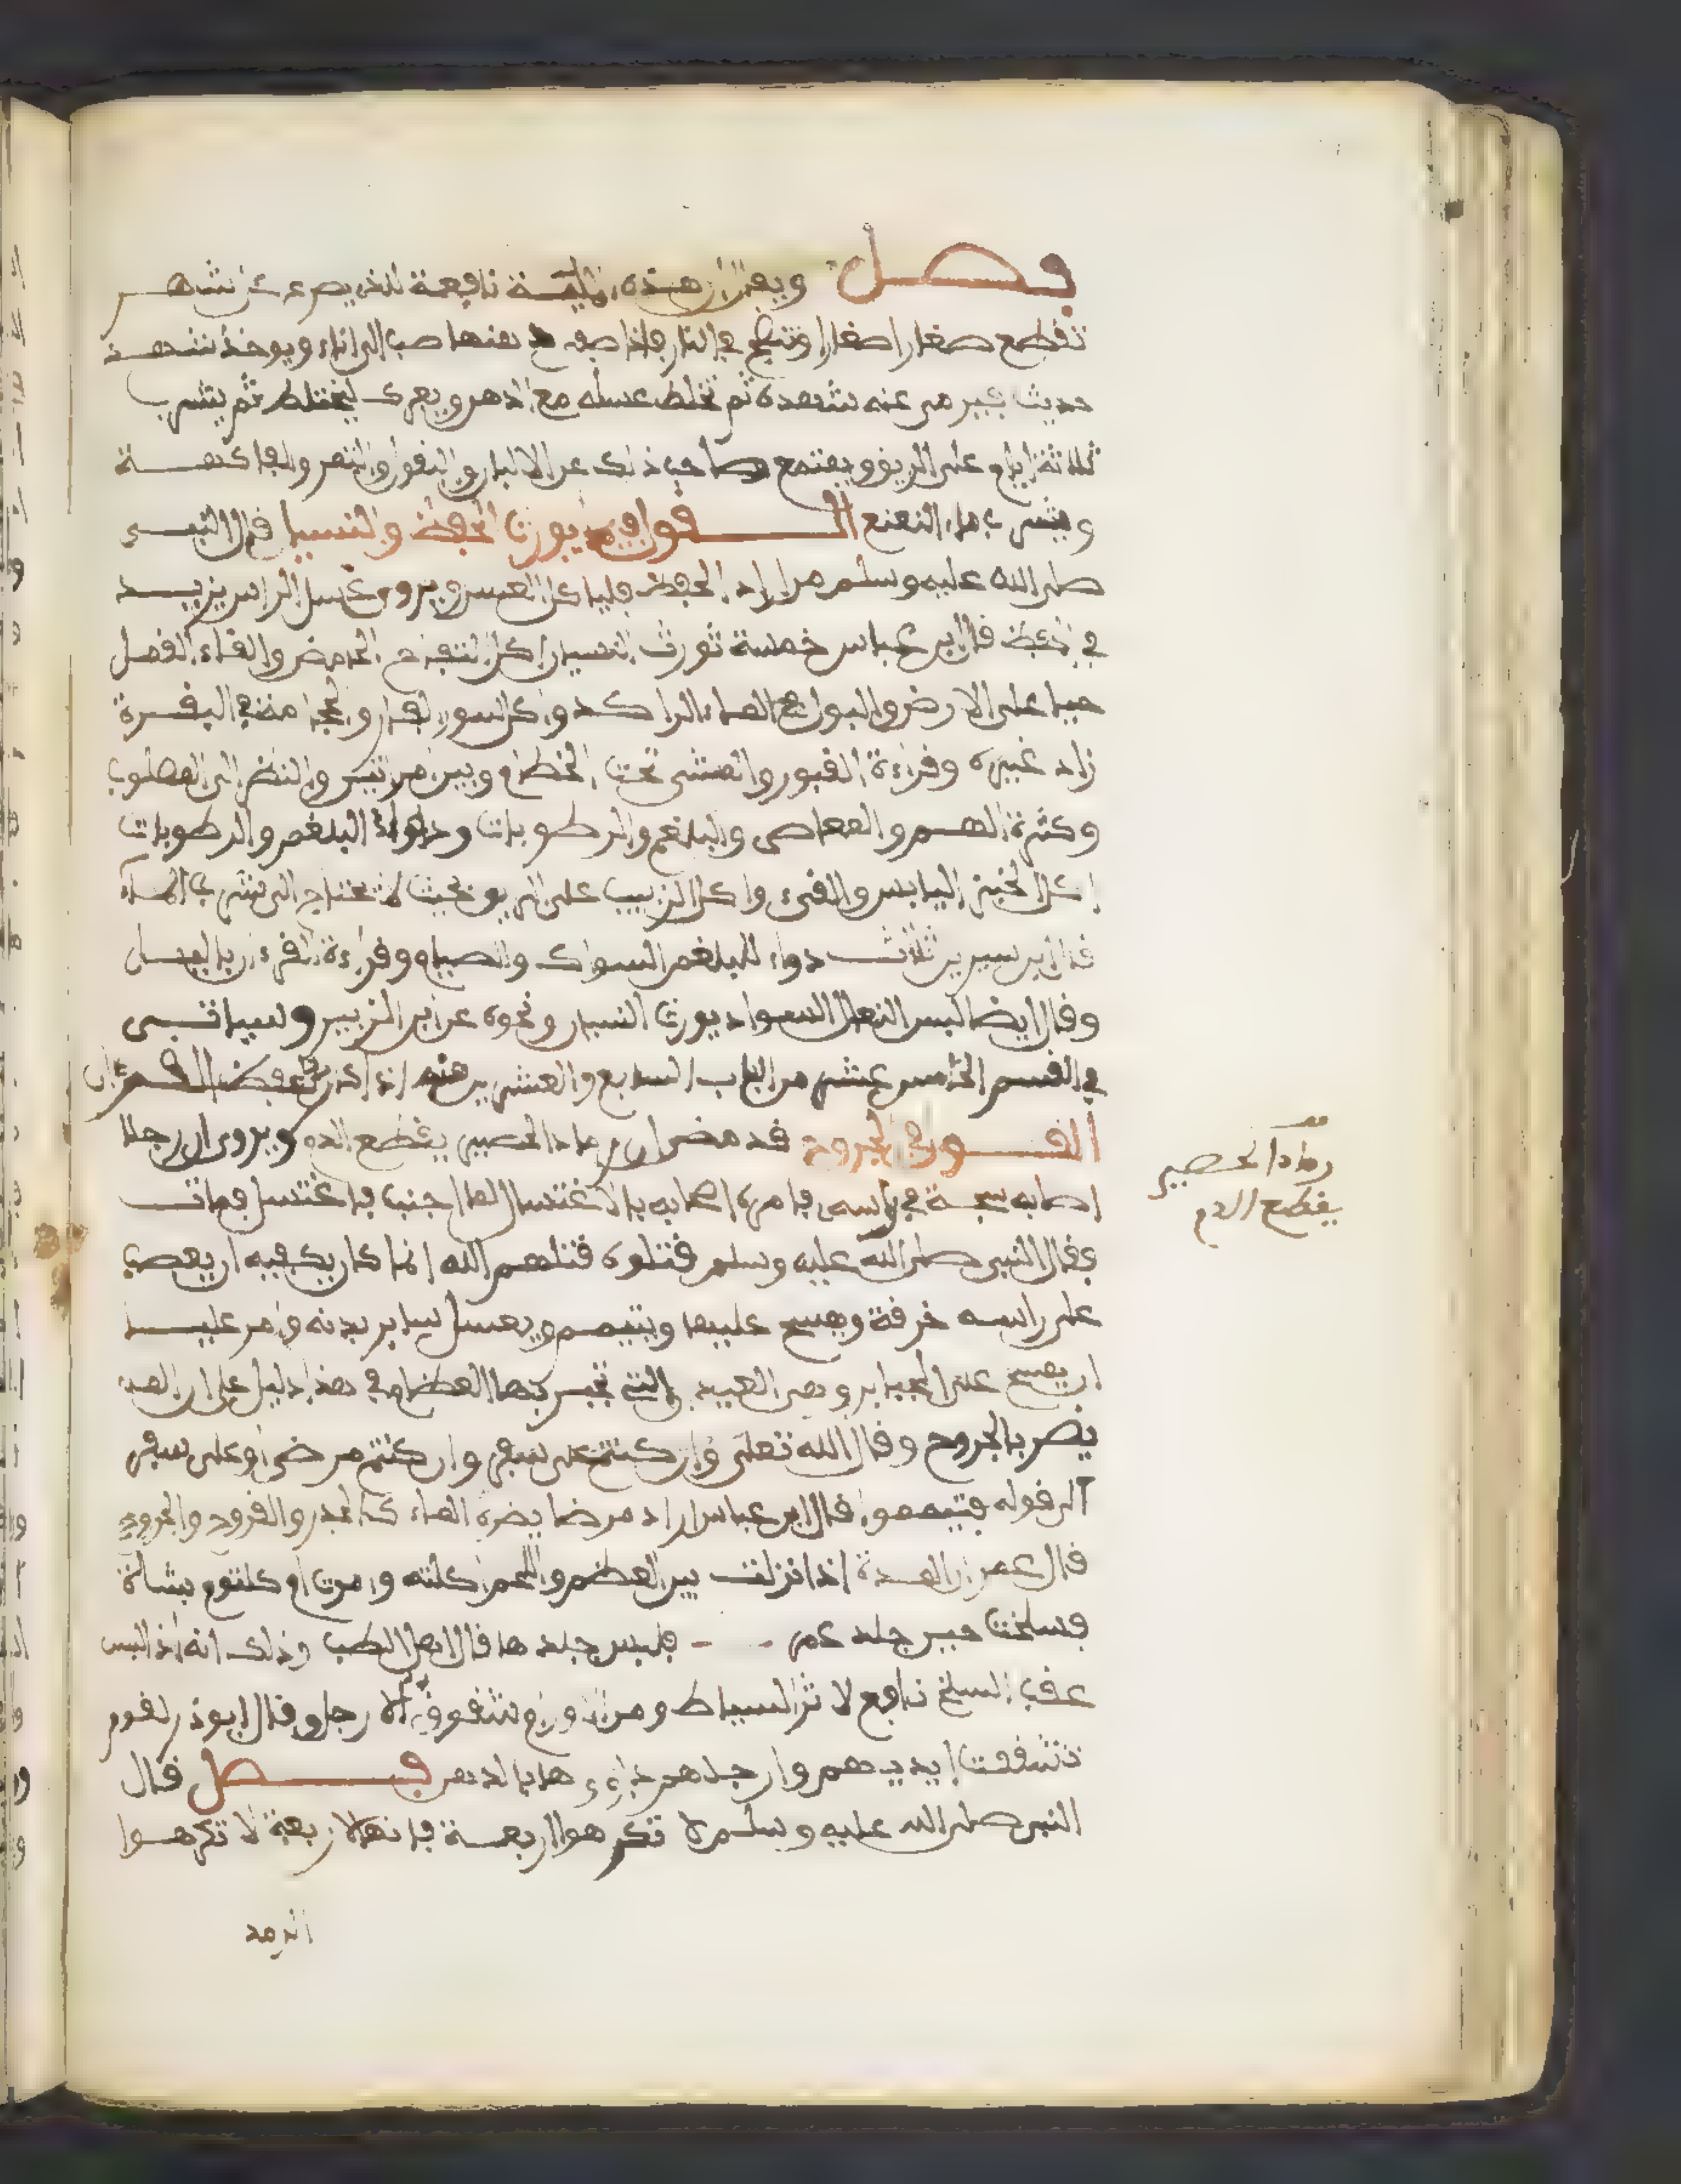 فصل ويقال ان هذه نافعة للذي يصرع عن شهر
تقطع صغارا صغارا وتطبخ في النار فاذا صف منها صب الى اناء ويوخذ شهد
حديث عنه شهده ثم تخلط عسله مع الدهن ويعرك ليختلط ثم يشرب
ثلاثة ايام على الريق ويمتنع صاحب ذلك عن الالبان والبقول والتمر والفاكهة
ويشرب ماء النعنع القول فيما يورث الحفظ والنسيان قال النبي
صلى الله عليه وسلم من اراد الحفظ فلياكل العسل ويروى غسل الراس يزيد
في الحفظ قال ابن عباس خمسة تورث النسيان اكل التفاح الحامض والقاء القمل
حيا على الارض والبول في الماء الراكد واكل سور الفار والحجامة في النقرة
زاد غيره وقراءة القبور والمشي تحت الخطام وبين مراتين والنظر الى المصلوب
وكثرة الهم والمعاصي والبلغم والرطوبات ودواء البلغم والرطوبات
اكل الخبز اليابس والقيء واكل الزبيب على الريق بحيث لا يحتاج الى شرب الماء
قال ابن سيرين ثلاث دواء للبلغم السواك والصيام وقراءة القرءان بالليل
وقال ايضا لبس النعال السود يورث النسيان ونحوه عن ابن الزبير وسياتي
في القسم الخامس عشر من الباب السابع والعشرين منه اذكار لحفظ القرءان
القول في الجروح قد مضى ان رماد الحصير يقطع الدم ويروى ان رجلا
اصابه شجة في راسه فامره اصحابه بالاغتسال لما اجنب فاغتسل فمات
فقال النبي صلى الله عليه وسلم قتلوه قتلهم الله انما كان يكفيه ان يعصب
على راسه خرقة ويمسح عليها ويتيمم ويغسل ساير بدنه وامر عليا
ان يمسح على الجباير وهي العيدان التي تجبر بها العظام وفي هذا دليل على ان الماء
يضر بالجروح وقال الله تعلى وان كنتم على سفر وان كنتم مرضى او على سفر
الى قوله فتيمموا قال ابن عباس اراد مرضا يضره الماء كالجدر والقروح والجروح
قال عمر ان المدة اذا نزلت بين العظم واللحم اكلته وامرت ام كلثوم بشاة
فسلخت حين جلد عمر فلبس جلدها قال اهل الطب وذلك انه اذا لبس
عقب السلخ نافع لاثر السياط ومن شقوق الارجل وقال ابوذر لقوم
تشققت ايديهم وارجلهم داووها بالدهن فصل قال
النبي صلى الله عليه وسلم لا تكرهوا اربعة فانها لاربعة لا تكرهوا
الرمد
قف
رماد الحصير
يقطع الدم